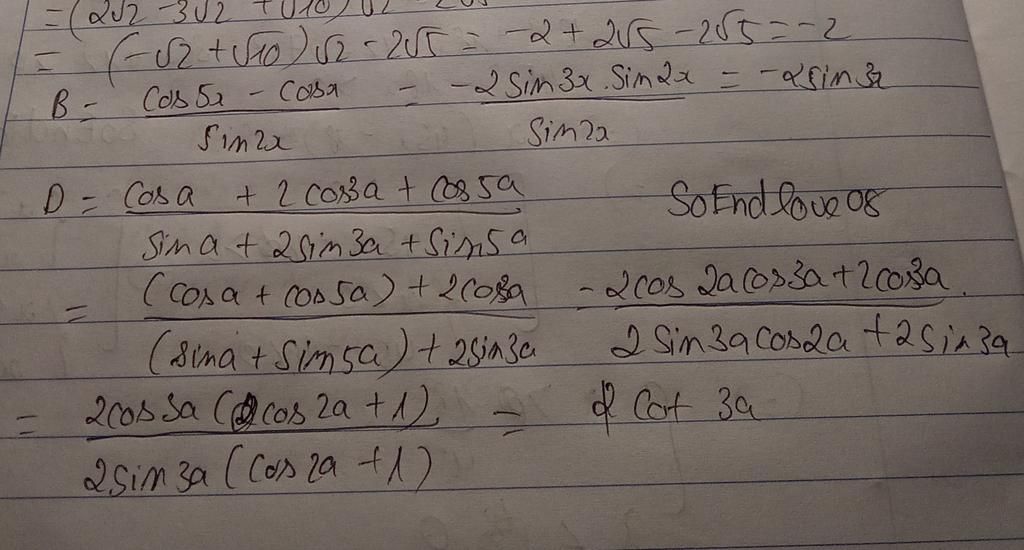 = (2√2 - 3√2 + √10)√2 - 2√5
= (-√2 + √10)√2 - 2√5 = -2 + 2√5 - 2√5 = -2
B = (cos5x - cosx)/(sin2x) = (-2sin3x.sin2x)/(sin2x) = -2sin3x
D = (cosa + 2cos3a + cos5a)/(sina + 2sin3a + sin5a) SoEndloveos
= ((cosa + cos5a) + 2cos3a)/((sina + sin5a) + 2sin3a) = (2cos2acos3a + 2cos3a)/(2sin3acos2a + 2sin3a)
= (2cos3a(cos2a + 1))/(2sin3a(cos2a + 1)) = cot 3a